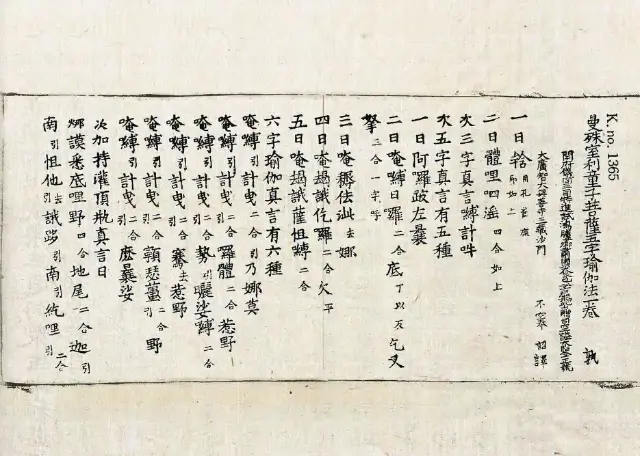 K. no. 1365
曼殊室利童子菩薩五字瑜伽法一卷 執
開府儀同三司特進試鴻臚卿肅國公食邑三千戶賜紫贈司空謚大鑒正號
大廣智大興善寺三藏沙門 不空奉 詔譯
一曰
二曰體哩呬淫 四合如上
次三字真言嚩計吽
次五字真言有五種
一曰阿羅跛左曩
二曰唵嚩日羅二合底丁以反乞叉
拏二合一字呼
三曰唵耨佉泚去娜
四曰唵朅誐仡羅二合欠平
五曰唵朅誐薩怛嚩二合
六字瑜伽真言有六種
唵嚩引計曳二合引乃娜莫
唵嚩引計曳二合囉體二合惹野
唵嚩引計曳二合勢引曬娑嚩二合
唵嚩引計曳二合引騫去惹野
唵嚩引計曳二合顊瑟薑二合引野
唵嚩引計曳二合引麼曩娑
次加持灌頂瓶真言曰
娜謨悉底哩野四合地尾二合迦引
南引怛他去引誐路引南引紇哩二合引